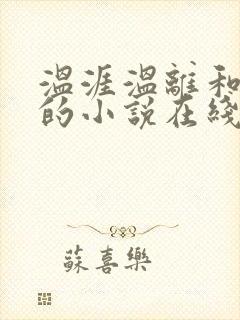 温涯温離和
的小说在綫
蘇喜樂